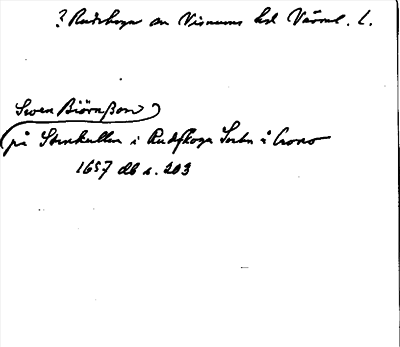 ? Rudskoga sn Visnums hd Värml. l.
Swen Biörnßon
på Stenkullen i Rudskoga Sochn i
1657 db s. 203